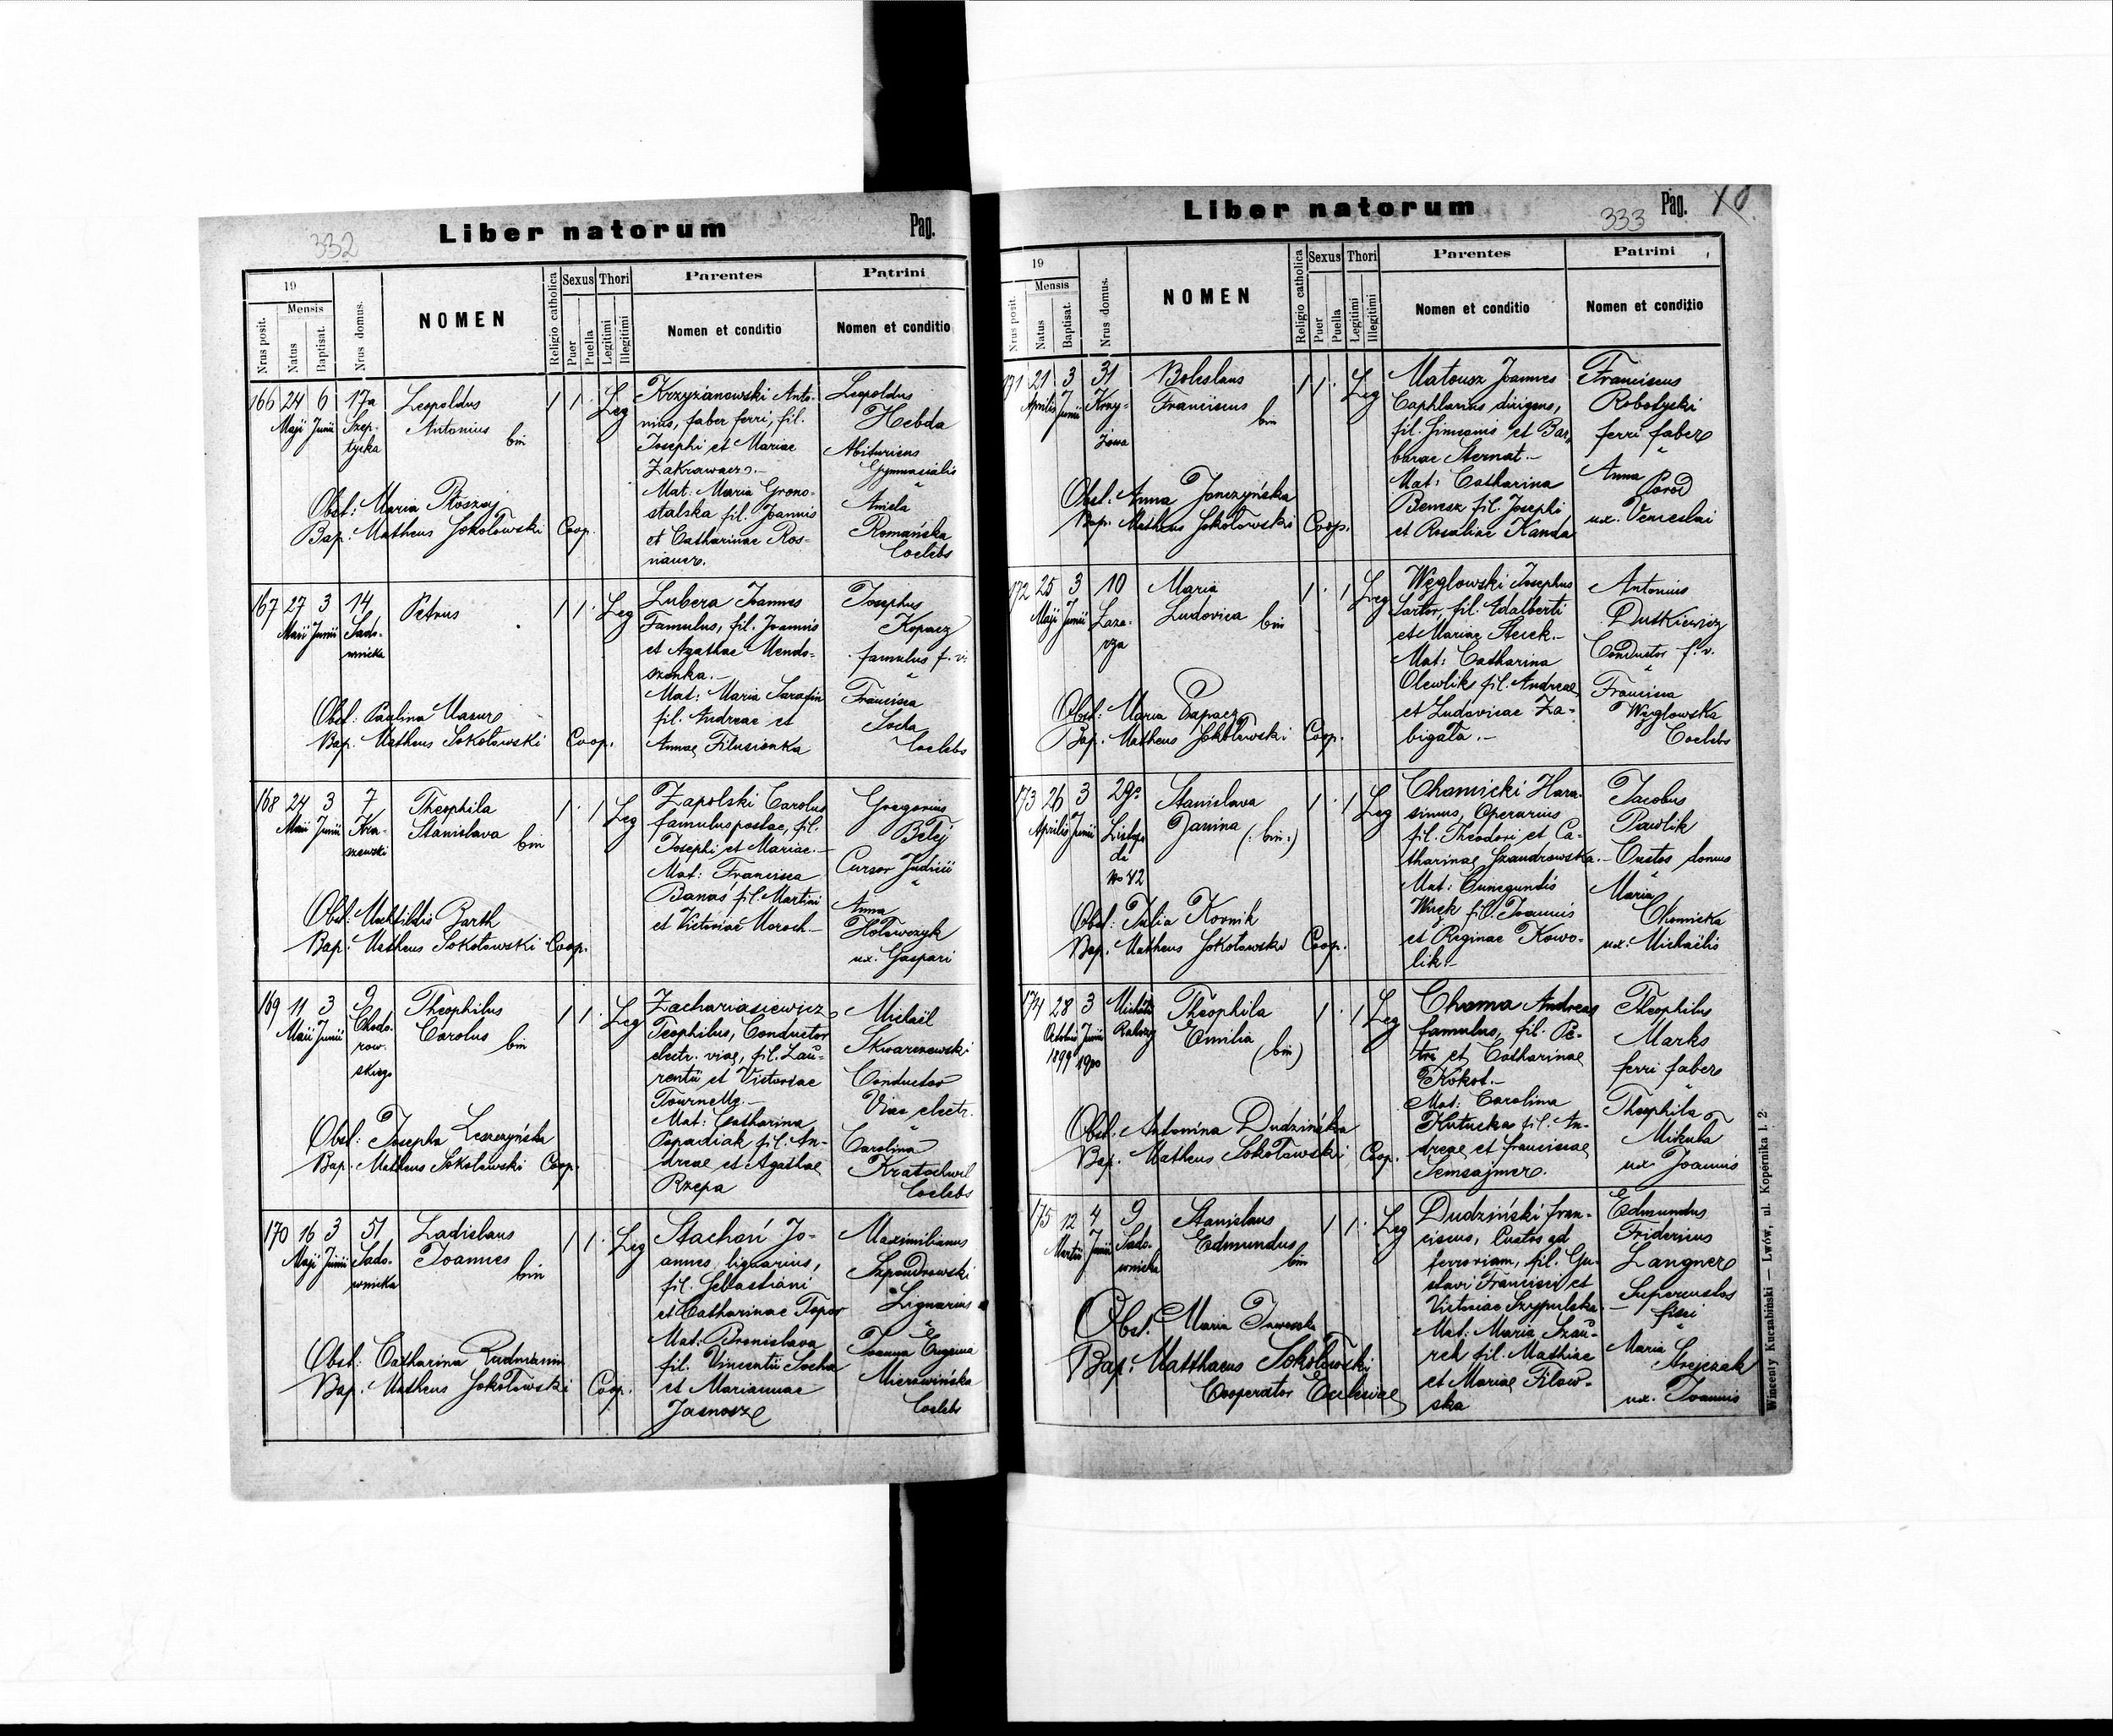 332
Liber natorum
Pag.
19
Mensis
Nrus posit.
Natus
Baptisat.
Nrus domus.
NOMEN
Religio catholica
Sexus
Puer
Puella
Thori
Legitimi
Illegitimi
Parentes
Nomen et conditio
Patrini
Nomen et conditio
166 24 6 17a
Maji Junii Szep-
tycka
Leopoldus
Antonius
bin
1 1 Leg
Obst: Maria
Bap: Matheus Sokołowski Coop.
Krzyżanowski Anto-
nius, faber ferri, fil.
Josephi et Mariae
Zakrawacz.-
Mat: Maria Grono-
stalska fil. Joannis
et Catharinae Ros-
nauer.
Leopoldus
Hebda
Abituriens
Gymnasialis
"
Aniela
Romańska
Coelebs
167 27 3 14
Maii Junii Sado-
wnicka
Petrus
1 1 Leg
Obst: Paulina Mazur
Bap. Matheus Sokołowski Coop.
Lubera Joannes
Famulus, fil. Joannis
et Agathae Mendo-
szonka.-
Mat: Maria Sarafin
fil. Andreae et
Annae Filusionka
Josephus
Kopacz
famulus f. v.
"
Francisca
Socha
Coelebs
168 24 3 7
Maii Junii Kra-
szewski
Theophila
Stanislava
bin
1 1 Leg
Obst: Mathildis Barth
Bap: Matheus Sokołowski Coop.
Zapolski Carolus
famulus postae, fil.
Josephi et Mariae.-
Mat: Francisca
Banaś fil. Martini
et Victoriae Moroch.-
Gregorius
Belej
Cursor Judicii
"
Anna
Hołowczyk
ux. Gaspari
169 11 3 9
Maii Junii Chodo-
row-
skiego
Theophilus
Carolus
bin
1 1 Leg
Obst: Josepha Leszczyńska
Bap: Matheus Sokołowski Coop.
Zachariasiewicz
Teophilus, Conductor
electr. viae, fil. Lau-
rentii et Victoriae
Tournelle.-
Mat: Catharina
Popadiak fil. An-
dreae et Agathae
Rzepa
Michaël
Skwarczowski
Conductor
Viae electr.
"
Carolina
Kratochwil
Coelebs
170 16 3 51
Maji Junii Sado-
wnicka
Ladislaus
Joannes
bin
1 1 Leg
Obst: Catharina
Bap: Matheus Sokołowski Coop.
Stachoń Jo-
annes, lignarius,
fil. Sebastiani
et Catharinae Topor
Mat: Bronislava
fil. Vincentii Socha
et Mariannae
Jasnosz
Maximilianus
Szpondrowski
Lignarius
"
Joanna Eugenia
Mierowińska
Coelebs
333
Liber natorum
Pag.
19
Mensis
Nrus posit.
Natus
Baptisat.
Nrus domus.
NOMEN
Religio catholica
Sexus
Puer
Puella
Thori
Legitimi
Illegitimi
Parentes
Nomen et conditio
Patrini
Nomen et conditio
171 21 3 31
Aprilis Junii Krzy-
żowa
Boleslaus
Franciscus
bin
1 1 Leg
Obst: Anna Jonczyńska
Bap: Matheus Sokołowski Coop.
Matousz Joannes
dirigens,
fil. Simeonis et Bar-
barae Sternat.-
Mat: Catharina
Benesz fil. Josephi
et Rosaliae Kanda
Franciscus
Robotycki
ferri faber
"
Anna
Porod
ux. Venceslai
172 25 3 10
Maji Junii Laza-
rza
Maria
Ludovica
bin
1 1 Leg
Obst: Maria Papacz
Bap: Matheus Sokołowski Coop.
Węglowski Josephus
Sartor, fil. Adalberti
et Mariae Sterek.-
Mat: Catharina
Olewlik fil. Andreae
et Ludovicae Za-
bigała.-
Antonius
Dutkiewicz
Conductor f. v.
"
Francisca
Węglowska
Coelebs
173 26 3 29
Aprilis Junii Listopa-
da
No 42
Stanislava
Janina (: bin :)
1 1 Leg
Obst: Julia Kornik
Bap: Matheus Sokołowski Coop.
Chamicki Hara-
simus, Operarius
fil. Theodori et Ca-
tharinae Szandrowska.-
Mat: Cunegundis
Wnęk fil. Joannis
et Reginae Kowo-
lik.-
Jacobus
Pawlik
Custos domus
"
Maria
Chamicka
ux. Michaëlis
174 28 3
Octobris Junii
1899 1900
Theophila
Emilia
(bin)
1 1 Leg
Obst: Antonina Dudzińska
Bap: Matheus Sokołowski Coop.
Choma Andreas
famulus, fil. Pe-
tri et Catharinae
Kokot.-
Mat: Carolina
Kutucka fil. An-
dreae et Franciscae
Semsajmer.
Theophilus
Marks
ferri faber
"
Theophila
Mikuła
ux Joannis
175 12 4 9
Martii Junii Sado-
wnicka
Stanislaus
Edmundus
bin
1 1 Leg
Obst. Maria
Bap: Matthaeus Sokołowski
Cooperator Ecclesiae
Dudziński Fran-
ciscus, Custos ad
ferroviam, fil. Gu-
stavi Francisci et
Victoriae Szypulska.-
Mat: Maria Szau-
rek fil. Mathiae
et Mariae Filow-
ska
Edmundus
Fridericus
Langner
Supercustos
fisci
"
Maria
Strejczak
ux. Joannis
Wincenty Kuczabiński — Lwów, ul. Kopernika l. 2